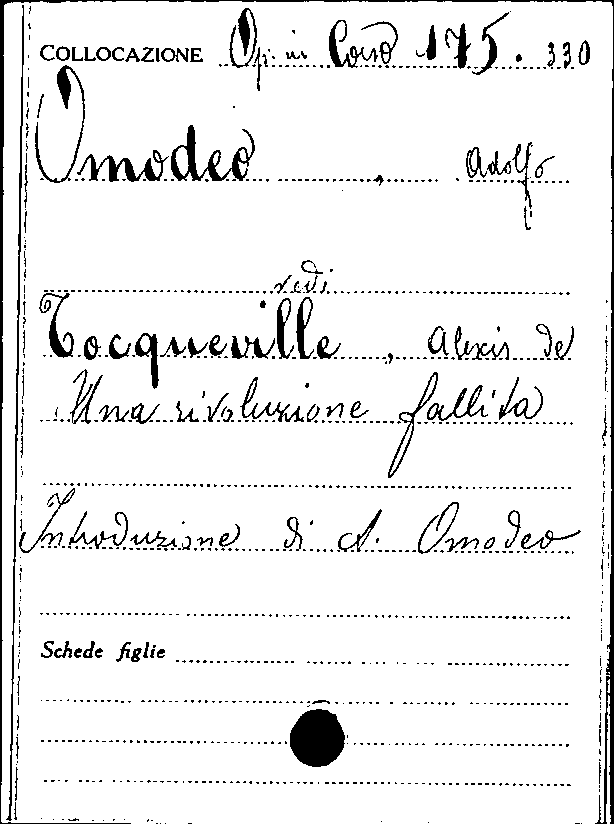 COLLOCAZIONE Op. in Corso 175. 330
Omodeo, Adolfo
vedi
Tocqueville, Alexis de
Una rivoluzione fallita
Introduzione di A. Omodeo
Schede figlie